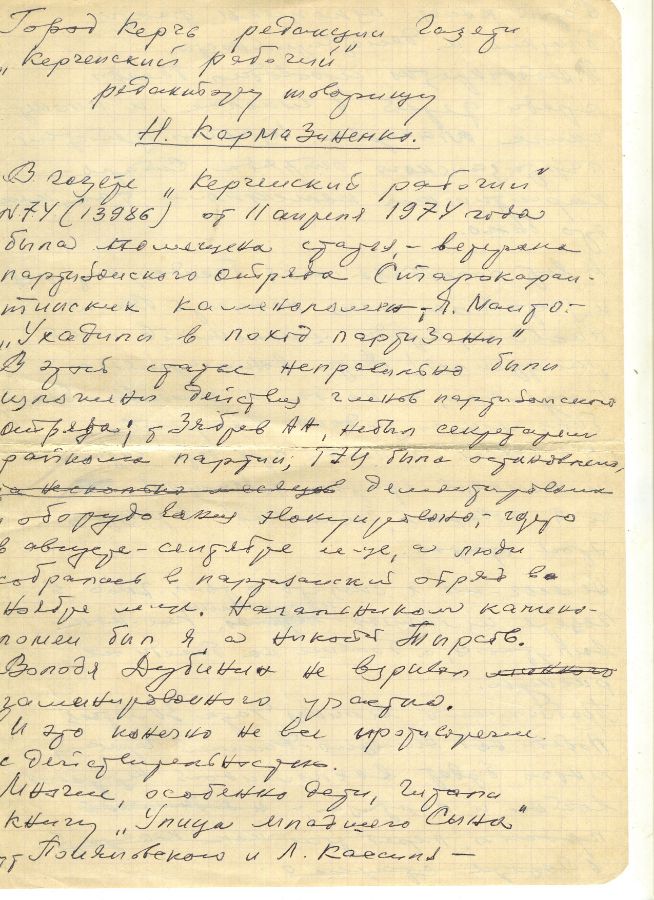 Город Керчь редакции Газеты
„Керченский рабочий"
редактору товарищу
Н. Кармазиненко.
В газете „Керченский рабочий"
№74 (13986) от 11 апреля 1974 года
была помещена статья, – ветерана
партизанского отряда Старокаран-
тинских каменоломен, – Л. Манто: –
„Уходили в поход партизаны"
В этой статье неправильно были
изложены действия членов партизанского
отряда; т Зябрев АА, небыл секретарем
райкома партии; ТЭЦ была остановлена,
а несколько месяцев демонтирована
и оборудования эвакуировано, – где то
в августе – сентябре м-це, а люди
собрались в партизанский отряд в
ноябре м-це. Начальником камено-
ломен был я, а
Володя Дубинин не взрывал
заминированного участка.
И это конечно не все противоречия
с действительностью.
Многие, особенно дети, читали
книгу „Улица младшего Сына"
Поляновского и Л. Кассиля –